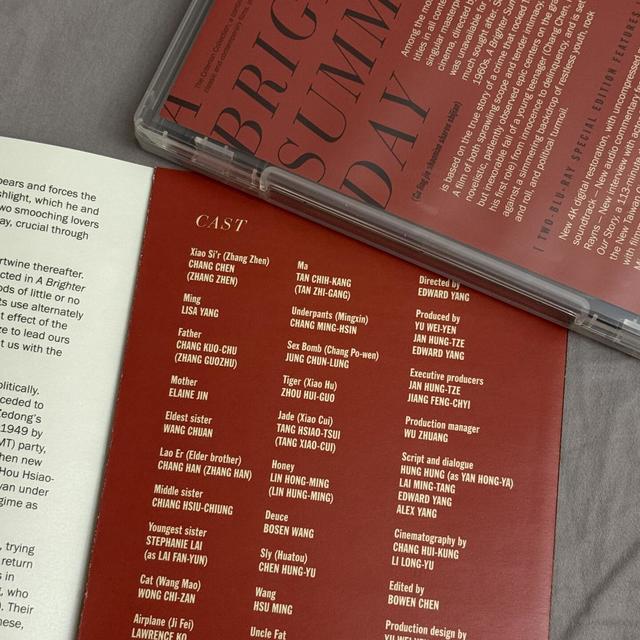 The Criterion Collection, a
classic and contemporary films
A
BRIG
SUMM
DAY
(Gu ling jie shaonian sharen shijian)
Among the mo
titles in all cont
singular masterp
cinema, directed by
was unavailable for
much sought after. S
1960s, A Brighter Sum
is based on the true story of a crime that rocked
A film of both sprawling scope and tender intimacy,
novelistic, patiently observed epic centers on the gra
but inexorable fall of a young teenager (Chang Chen,
his first role) from innocence to delinquency, and is set
against a simmering backdrop of restless youth, rock
and roll, and political turmoil.
[ TWO-BLU-RAY SPECIAL EDITION FEATURES
New 4K digital restoration, with uncompressed
soundtrack – New audio comment
Rayns – New interview with
Our Story, a 113-min
the New Taiwan
with
pears and forces the
shlight, which he and
wo smooching lovers
ay, crucial through
ertwine thereafter.
cted in A Brighter
ods of little or no
ts use alternately
t effect of the
ze to lead ours
t us with the
olitically.
ceded to
Zedong's
1949 by
MT) party,
hen new
Hou Hsiao-
van under
gime as
, trying
return
s in
). Their
nese,
CAST
Xiao Si'r (Zhang Zhen)
CHANG CHEN
(ZHANG ZHEN)
Ming
LISA YANG
Father
CHANG KUO-CHU
(ZHANG GUOZHU)
Mother
ELAINE JIN
Eldest sister
WANG CHUAN
Lao Er (Elder brother)
CHANG HAN (ZHANG HAN)
Middle sister
CHIANG HSIU-CHIUNG
Youngest sister
STEPHANIE LAI
(as LAI FAN-YUN)
Cat (Wang Mao)
WONG CHI-ZAN
Airplane (Ji Fei)
LAWRENCE KO
Ma
TAN CHIH-KANG
(TAN ZHI-GANG)
Underpants (Mingxin)
CHANG MING-HSIN
Sex Bomb (Chang Po-wen)
JUNG CHUN-LUNG
Tiger (Xiao Hu)
ZHOU HUI-GUO
Jade (Xiao Cui)
TANG HSIAO-TSUI
(TANG XIAO-CUI)
Honey
LIN HONG-MING
(LIN HUNG-MING)
Deuce
BOSEN WANG
Sly (Huatou)
CHEN HUNG-YU
Wang
HSU MING
Uncle Fat
Directed by
EDWARD YANG
Produced by
YU WEI-YEN
JAN HUNG-TZE
EDWARD YANG
Executive producers
JAN HUNG-TZE
JIANG FENG-CHYI
Production manager
WU ZHUANG
Script and dialogue
HUNG HUNG (as YAN HONG-YA)
LAI MING-TANG
EDWARD YANG
ALEX YANG
Cinematography by
CHANG HUI-KUNG
LI LONG-YU
Edited by
BOWEN CHEN
Production design by